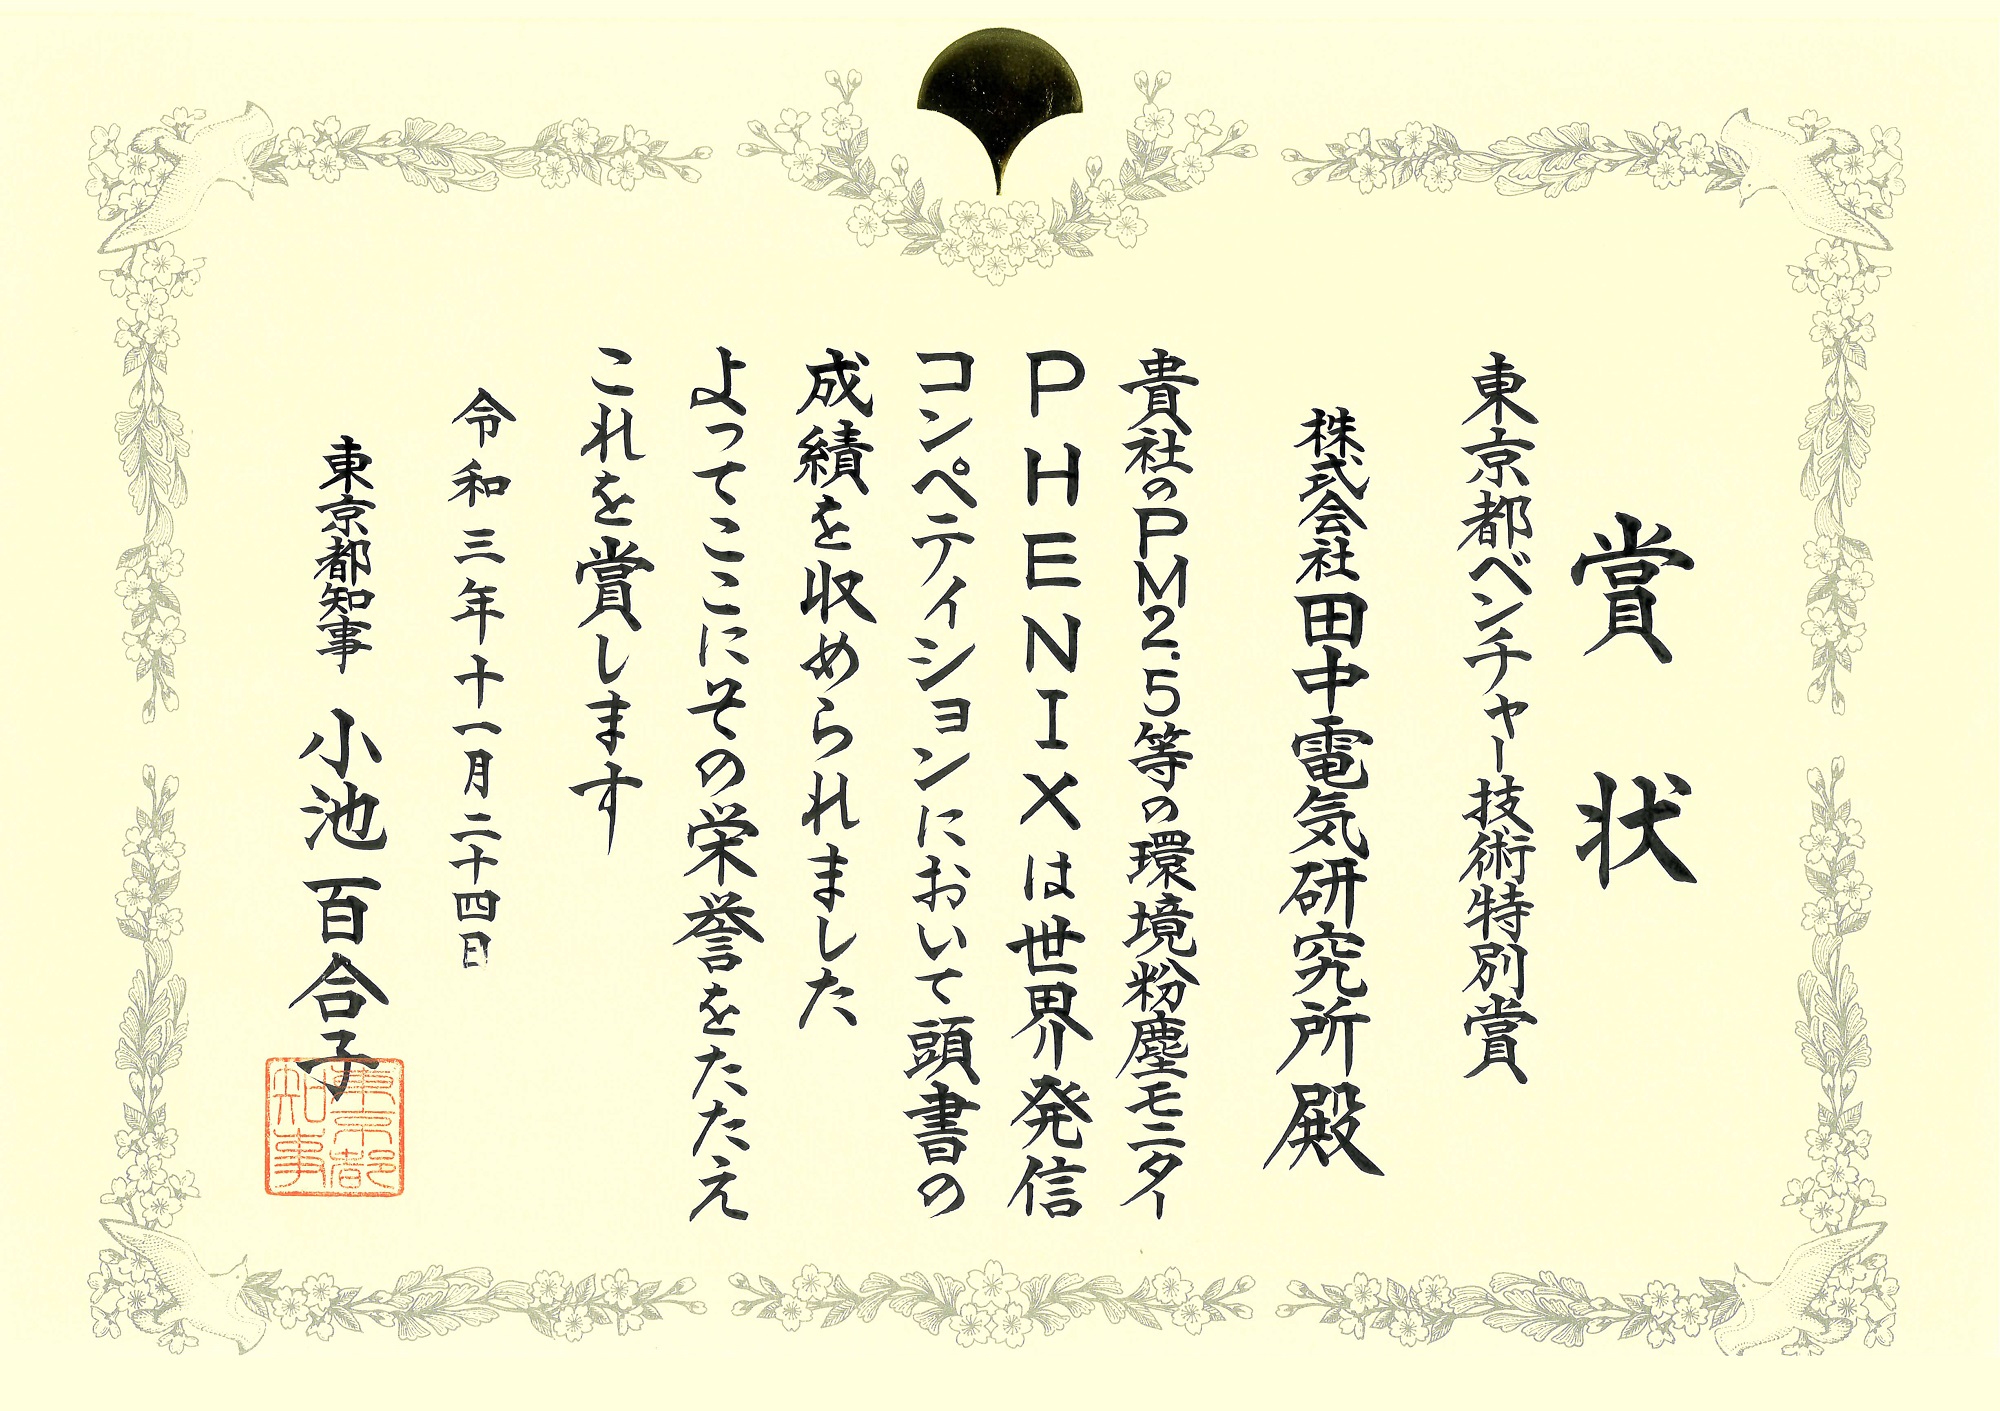 賞状
東京都ベンチャー技術特別賞
株式会社田中電気研究所殿
貴社のPM2.5等の環境粉塵モニター
PHENIXは世界発信
コンペティションにおいて頭書の
成績を収められました
よってここにその栄誉をたたえ
これを賞します
令和三年十一月二十四日
東京都知事 小池百合子
東京都
知事